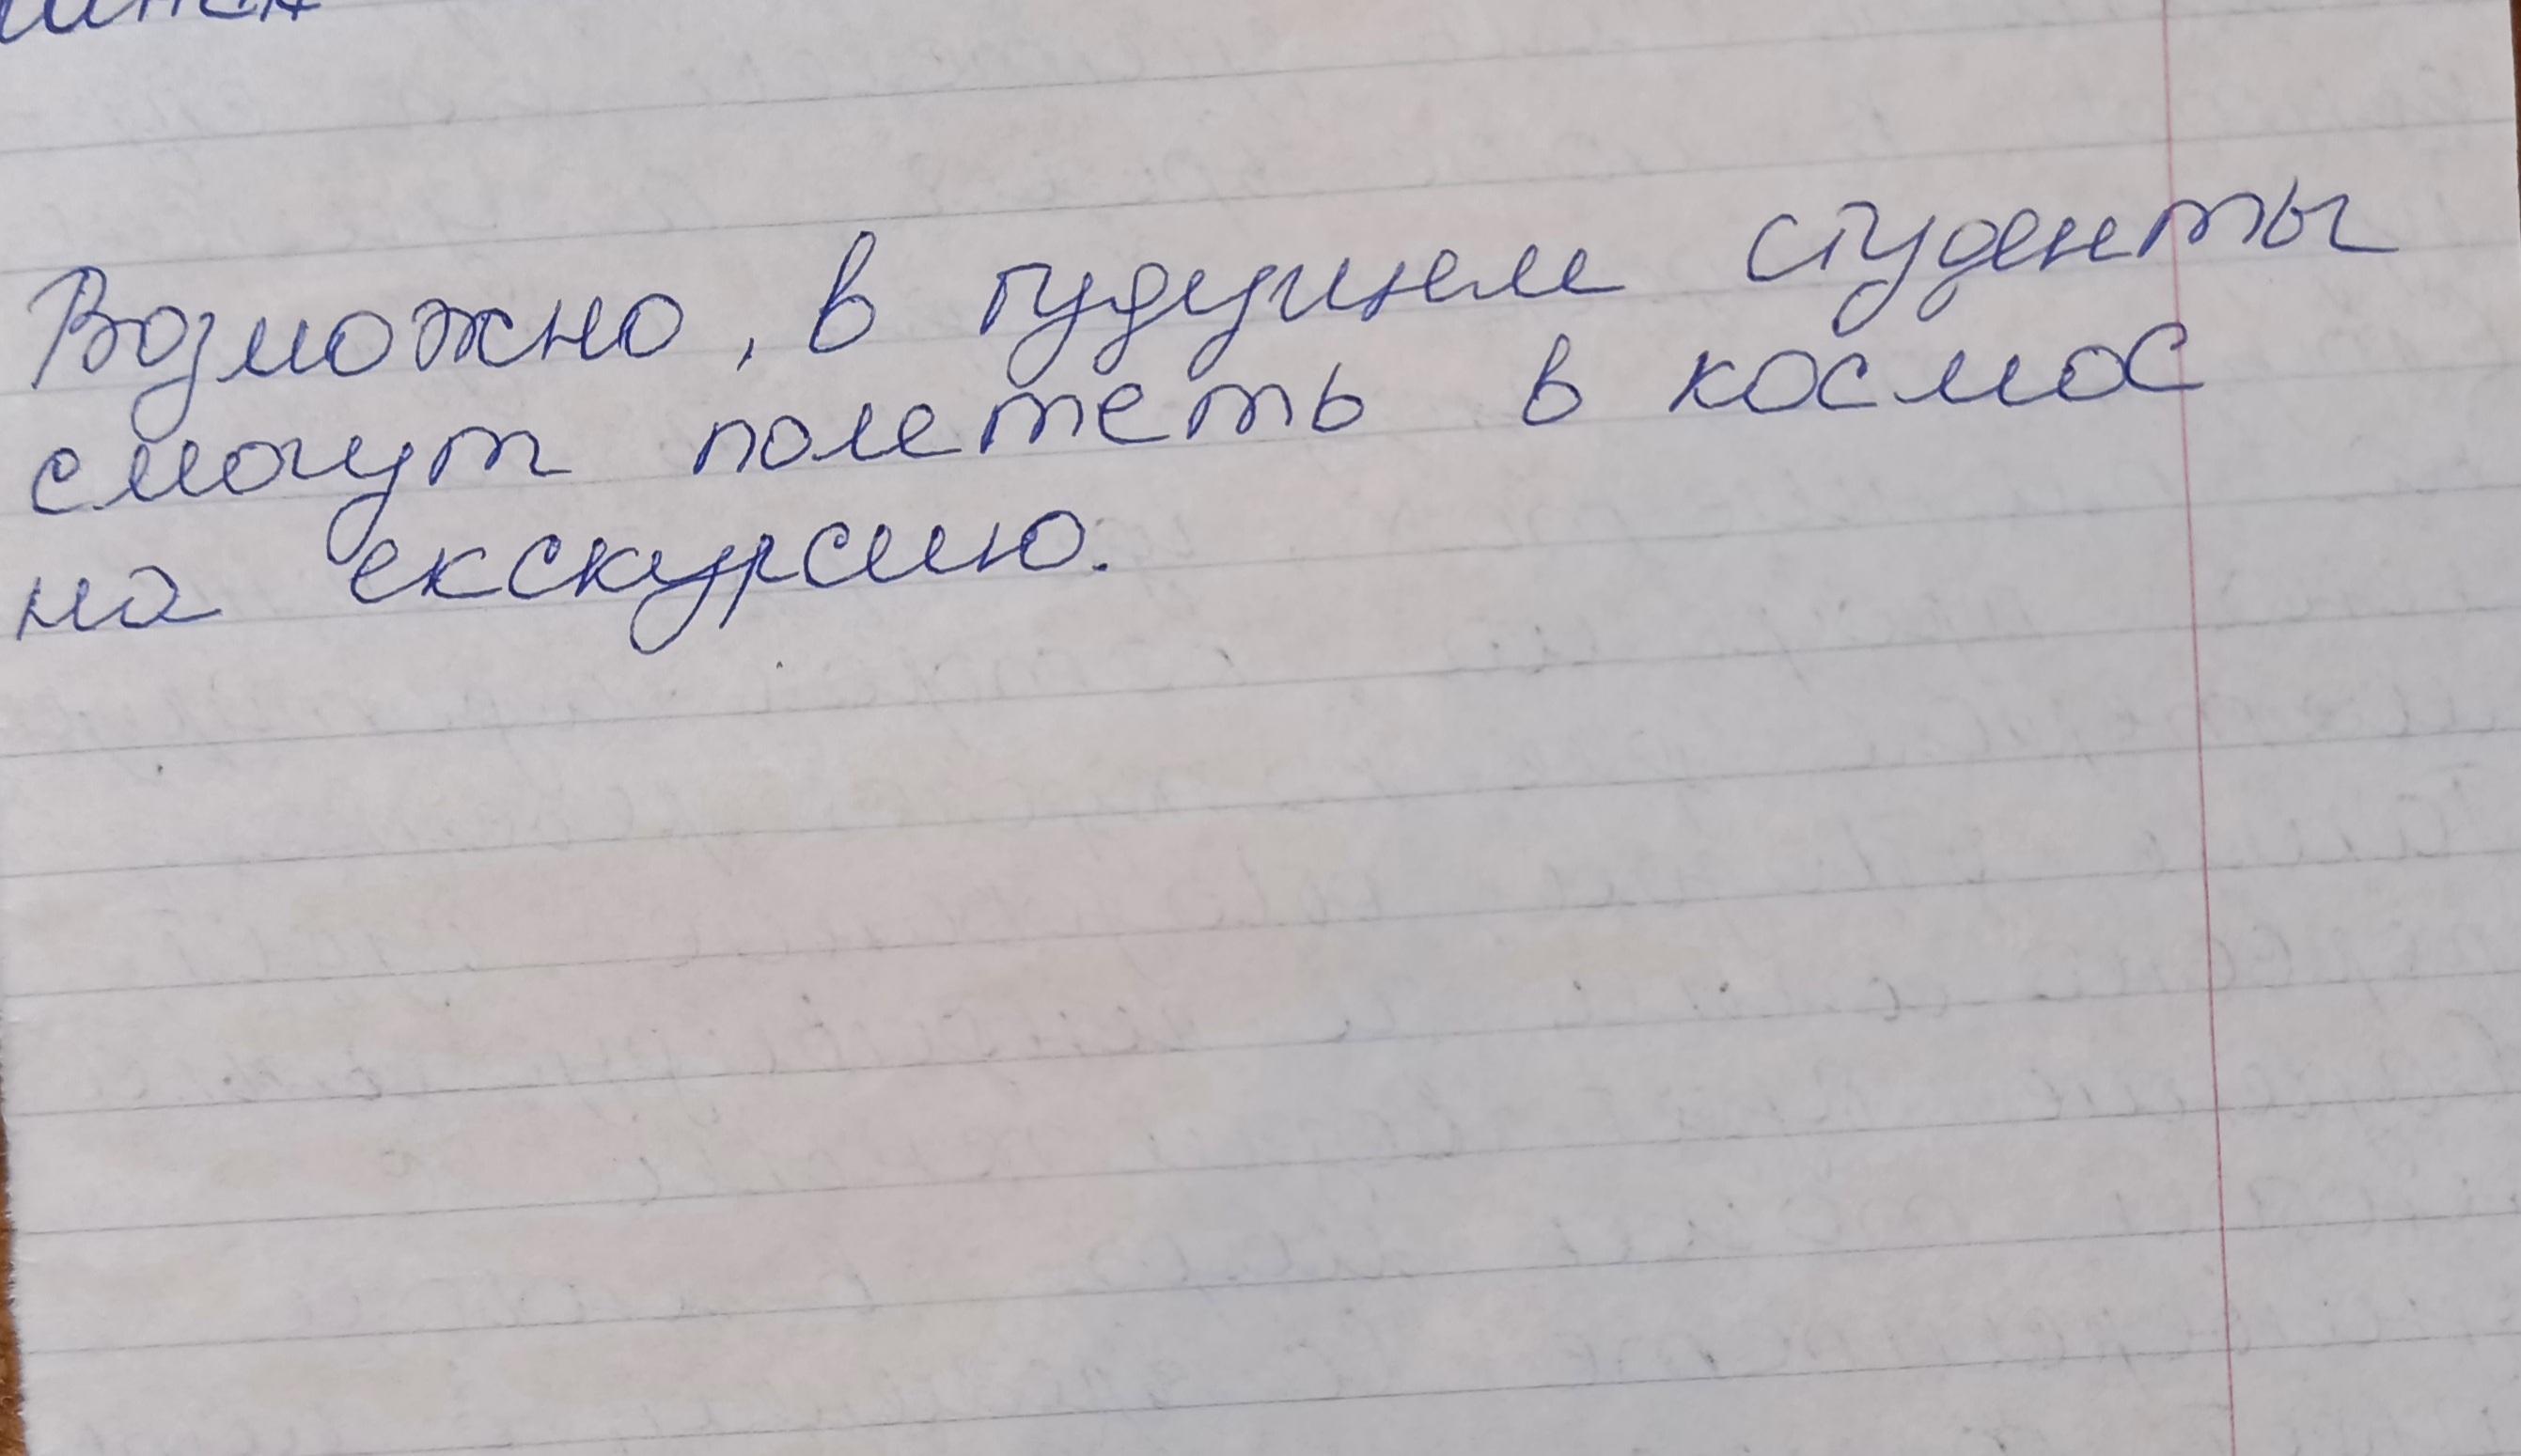 Возможно, в гудущем студенты
смогут полететь в космос
на екскурсию.